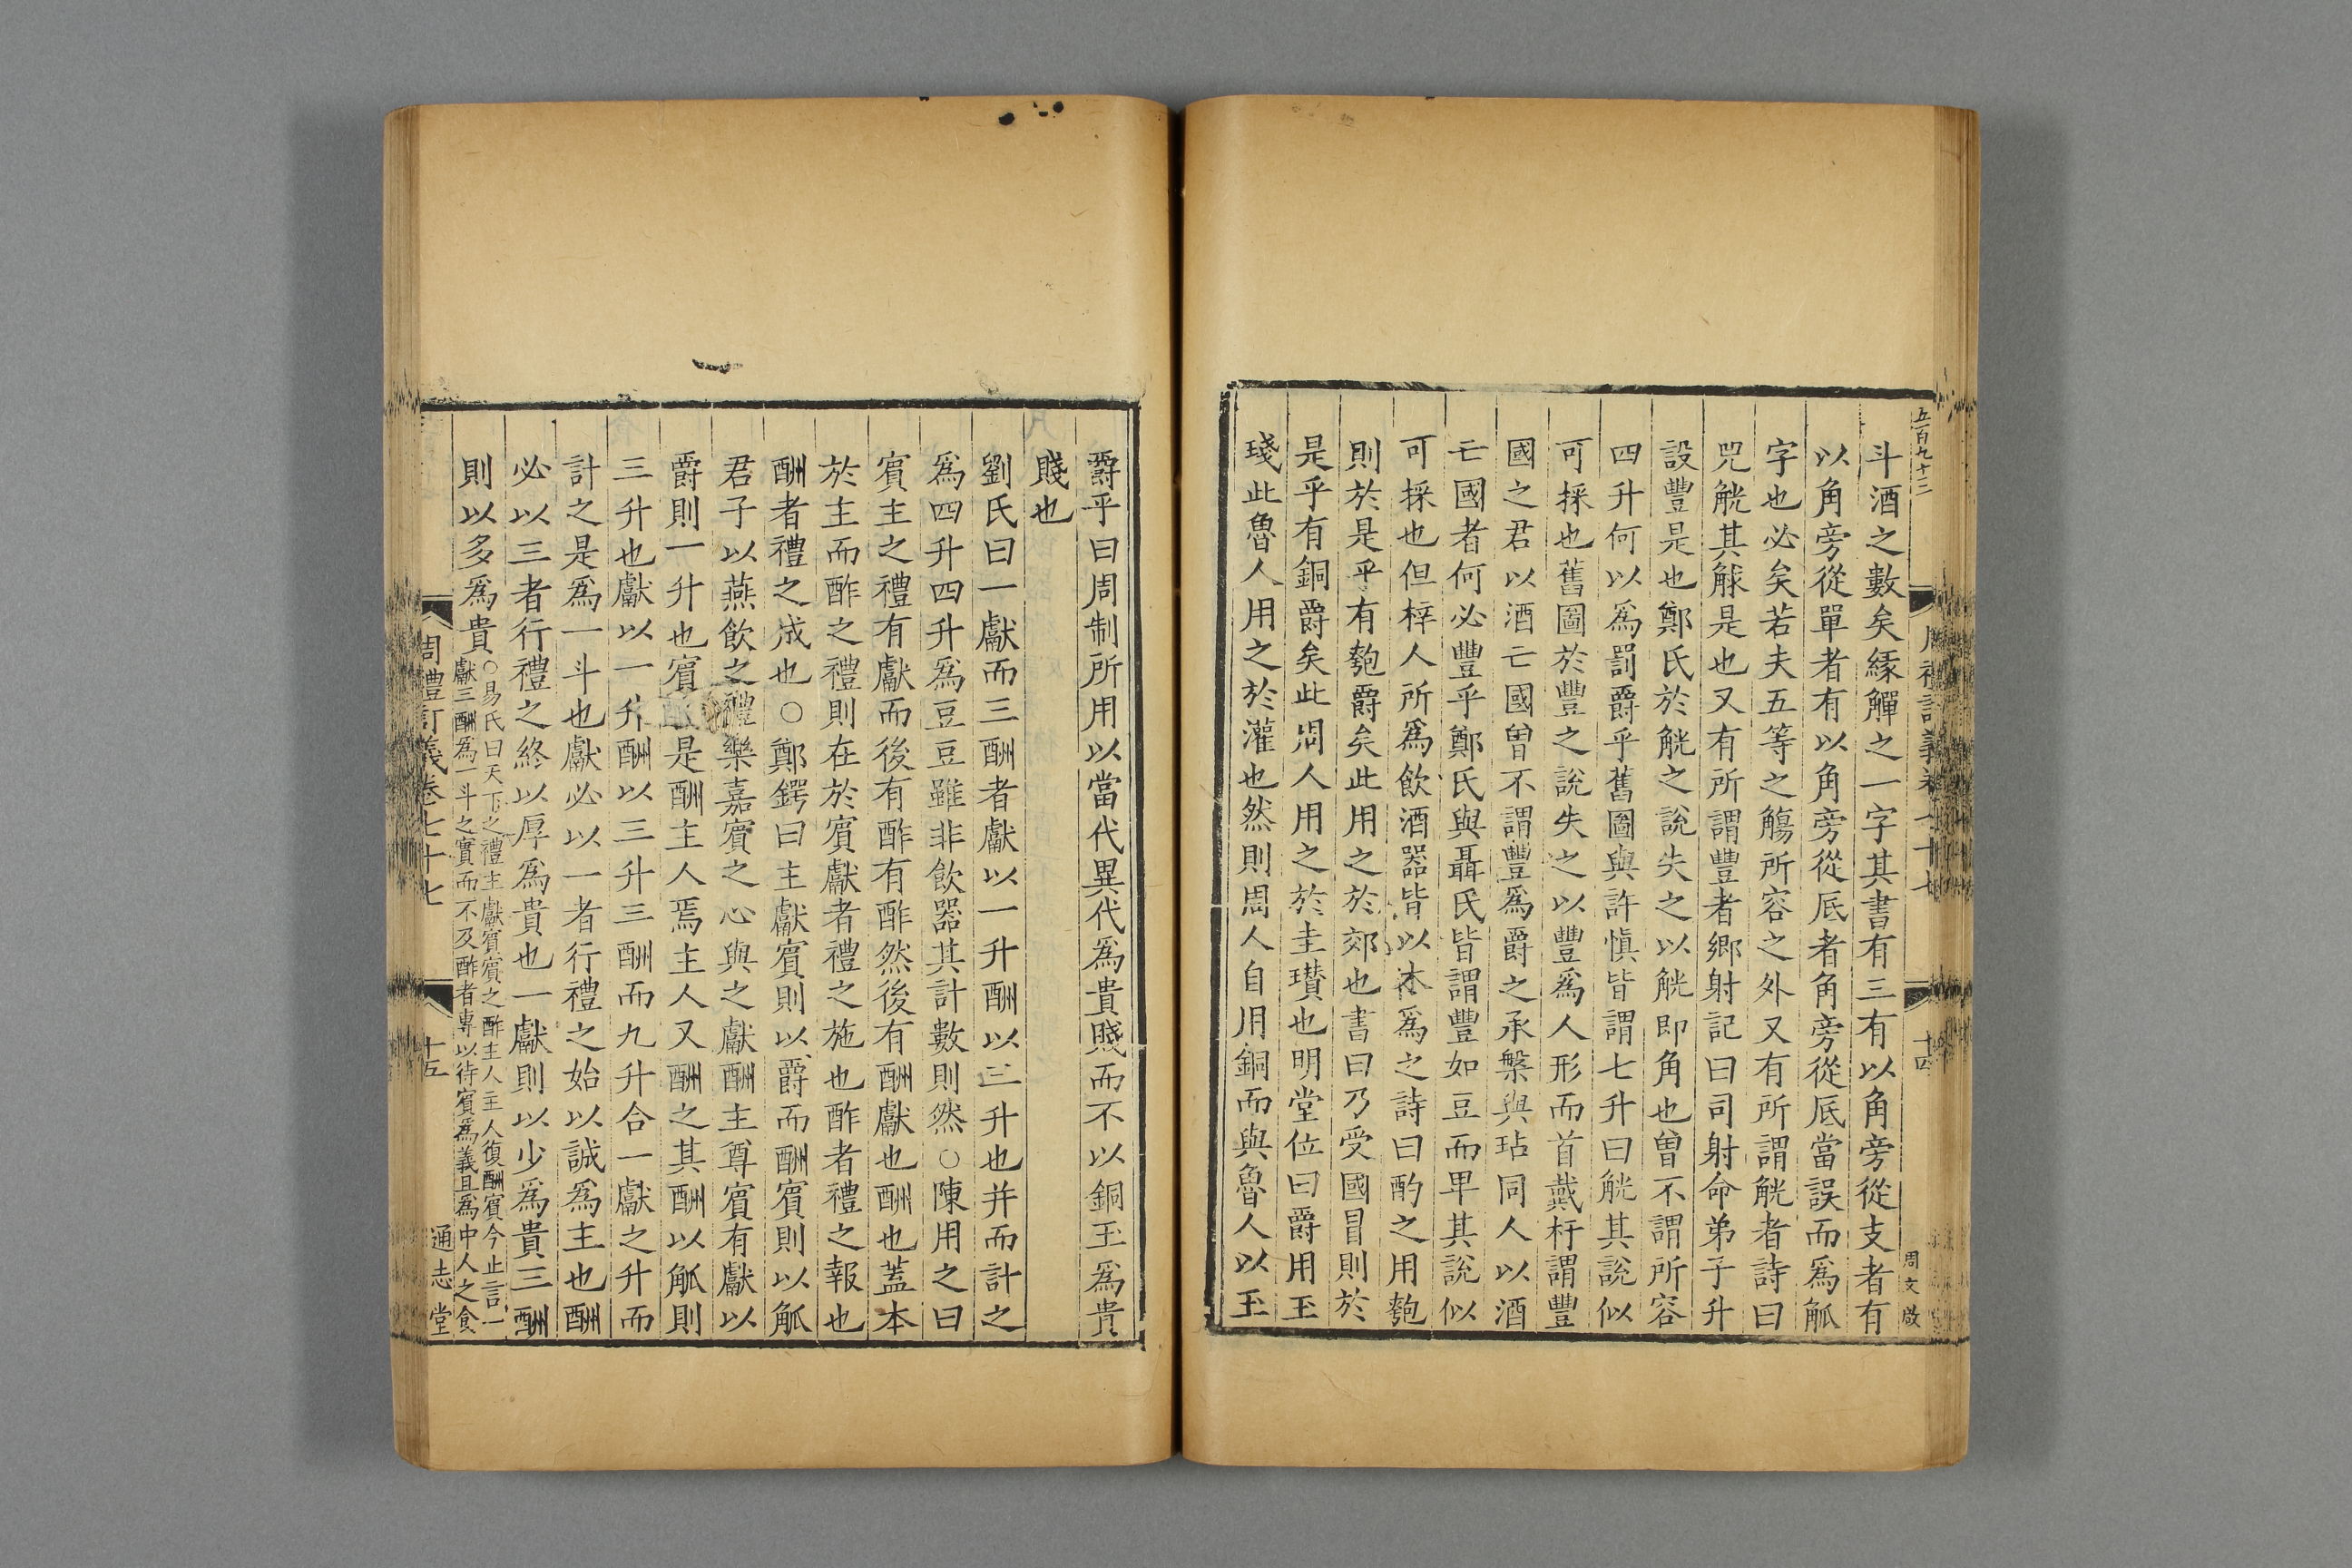 五百九十二
斗酒之數矣緣觶之一字其書有三有以角旁從支者有
以角旁從單者有以角旁從厎者角旁從厎當誤而爲觚
字也必矣若夫五等之觴所容之外又有所謂觥者詩曰
兕觥其觩是也又有所謂豐者鄉射記曰司射命弟子升
設豐是也鄭氏於觥之說失之以觥即角也曽不謂所容
四升何以爲罰爵乎舊圖與許愼皆謂七升曰觥其說似
可採也舊圖於豐之說失之以豐爲人形而首戴杅謂豐
國之君以酒亡國曽不謂豐爲爵之承槃與玷同人以酒
亡國者何必豐乎鄭氏與聶氏皆謂豐如豆而卑其說似
可採也但梓人所爲飲酒器皆以木爲之詩曰酌之用匏
則於是乎有匏爵矣此用之於郊也書曰乃受國冒則於
是乎有銅爵矣此周人用之於圭瓚也明堂位曰爵用玉
琖此魯人用之於灌也然則周人自用銅而與魯人以玉
周禮訂義卷七十七
十四
周文啟
爵乎曰周制所用以當代異代爲貴賤而不以銅玉爲貴
賤也
劉氏曰一獻而三酬者獻以一升酬以三升也并而計之
爲四升四升爲豆豆雖非飲器其計數則然○陳用之曰
賓主之禮有獻而後有酢有酢然後有酬獻也酬也蓋本
於主而酢之禮則在於賓獻者禮之施也酢者禮之報也
酬者禮之成也○鄭鍔曰主獻賓則以爵而酬賓則以觚
君子以燕飲之禮樂嘉賓之心與之獻酬主尊賓有獻以
爵則一升也賓於是酬主人焉主人又酬之其酬以觚則
三升也獻以一升酬以三升三酬而九升合一獻之升而
計之是爲一斗也獻必以一者行禮之始以誠爲主也酬
必以三者行禮之終以厚爲貴也一獻則以少爲貴三酬
則以多爲貴
○易氏曰天下之禮主獻賓賓之酢主人主人復酬賓今止言一
獻三酬爲一斗之實而不及酢者專以待賓爲義且爲中人之食
周禮訂義卷七十七
十五
通志堂